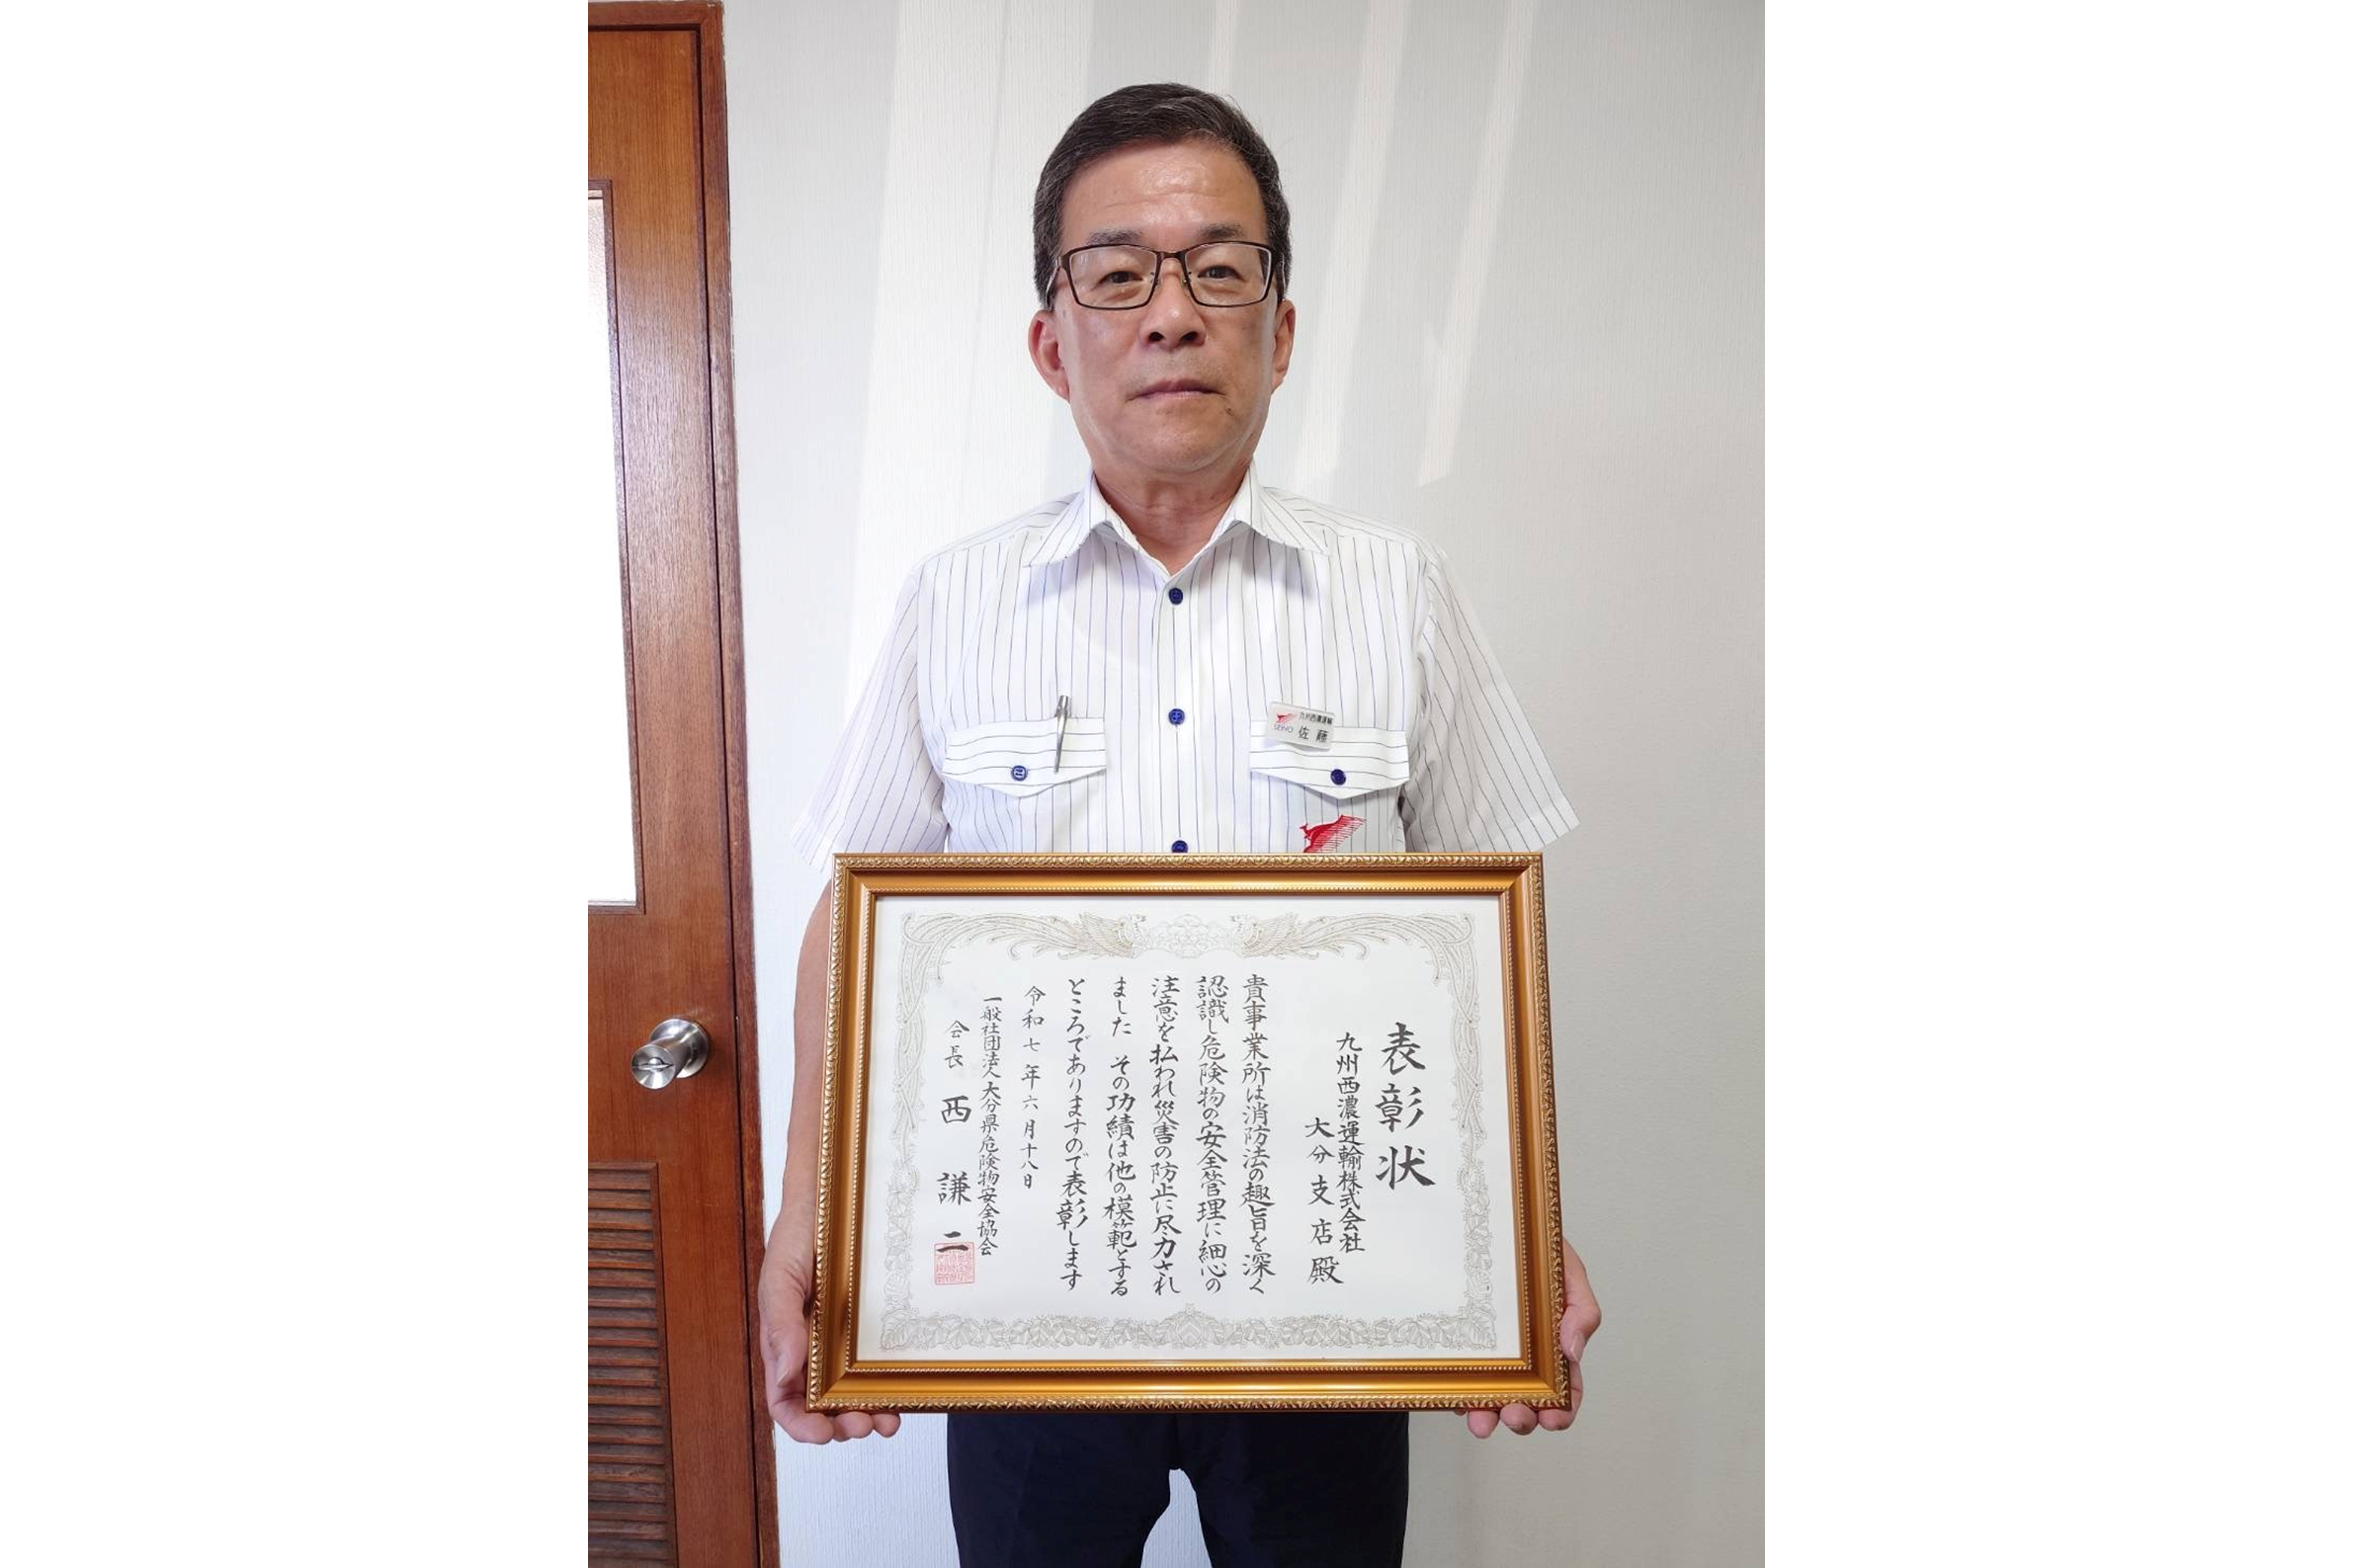 九州西濃運輸
SEINO 佐藤
表彰状
九州西濃運輸株式会社
大分支店殿
貴事業所は消防法の趣旨を深く
認識し危険物の安全管理に細心の
注意を払われ災害の防止に尽力され
ました その功績は他の模範とする
ところでありますので表彰します
令和七年六月十八日
一般社団法人大分県危険物安全協会
会長 西 謙二